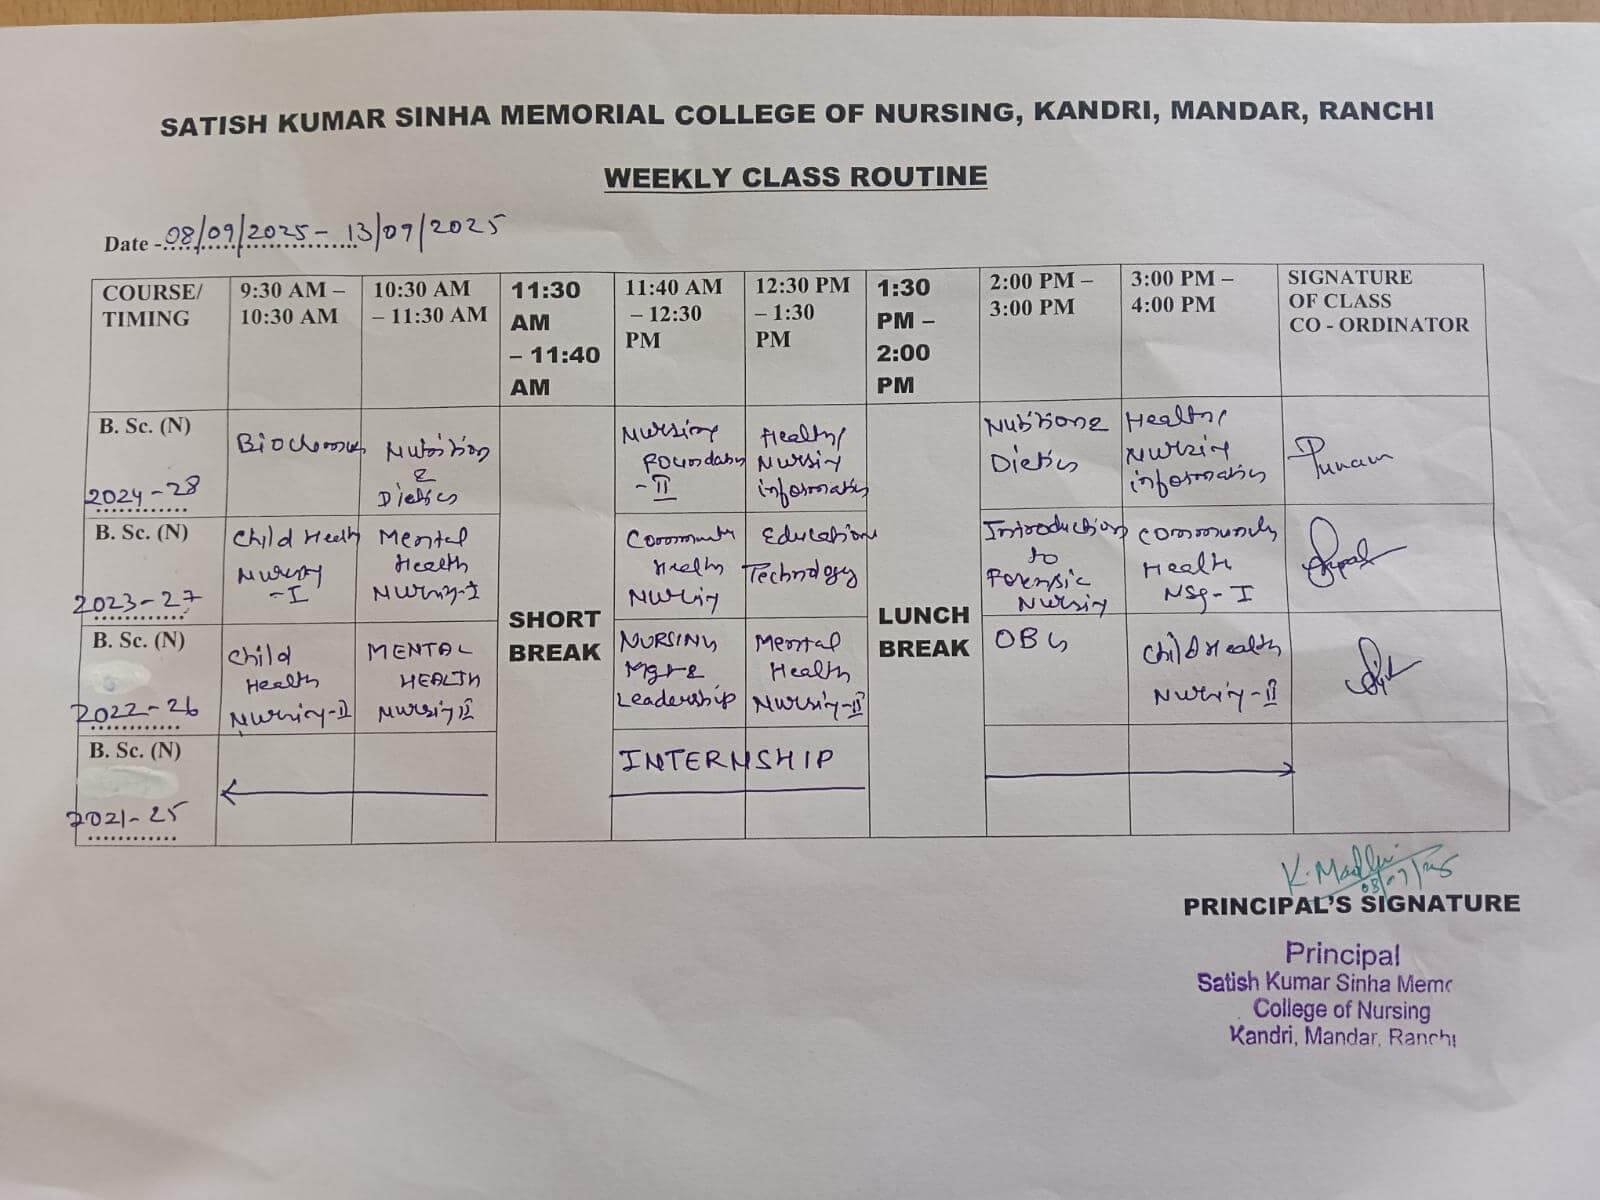 SATISH KUMAR SINHA MEMORIAL COLLEGE OF NURSING, KANDRI, MANDAR, RANCHI
WEEKLY CLASS ROUTINE
Date - 08/09/2025 - 13/09/2025
COURSE/
TIMING
9:30 AM –
10:30 AM
10:30 AM
– 11:30 AM
11:30
AM
– 11:40
AM
11:40 AM
– 12:30
PM
12:30 PM
– 1:30
PM
1:30
PM –
2:00
PM
2:00 PM –
3:00 PM
3:00 PM –
4:00 PM
SIGNATURE
OF CLASS
CO - ORDINATOR
B. Sc. (N)
2024-28
Nutrition
&
Dietics
Nursing
Foundation
- II
Health/
Nursing
informatics
Nutrition &
Dietics
Health/
Nursing
informatics
Punam
B. Sc. (N)
2023-27
Child Health
Nursing
- I
Mental
Health
Nursing-I
Community
Health
Nursing
Education
Technology
Introduction
to
Forensic
Nursing
Community
Health
NSg- I
B. Sc. (N)
2022-26
Child
Health
Nursing-II
MENTAL
HEALTH
Nursing II
NURSING
Mgt &
Leadership
Mental
Health
Nursing-II
OBG
Child Health
Nursing-II
B. Sc. (N)
2021-25
INTERNSHIP
SHORT
BREAK
LUNCH
BREAK
K. Madhu
PRINCIPAL'S SIGNATURE
Principal
Satish Kumar Sinha Memo
College of Nursing
Kandri, Mandar, Ranchi